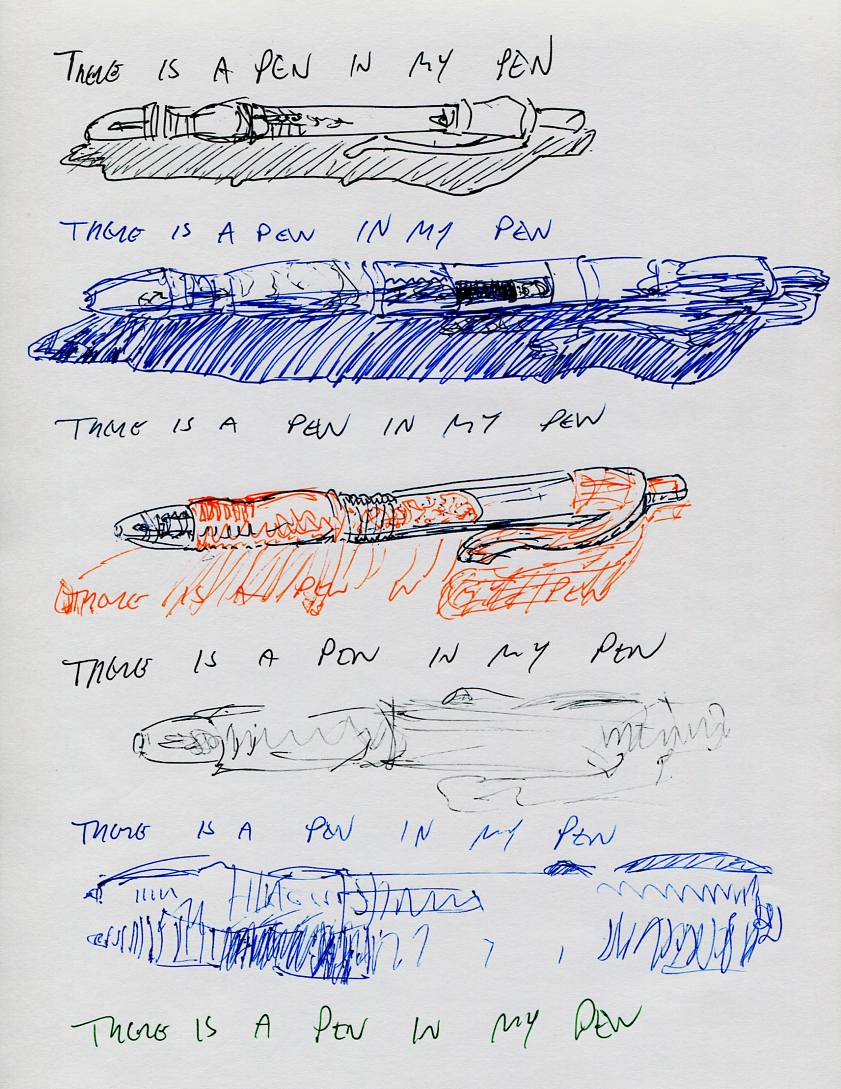 THERE IS A PEN IN MY PEN
THERE IS A PEN IN MY PEN
THERE IS A PEN IN MY PEN
THERE IS A PEN IN MY PEN
THERE IS A PEN IN MY PEN
THERE IS A PEN IN MY PEN
THERE IS A PEN IN MY PEN